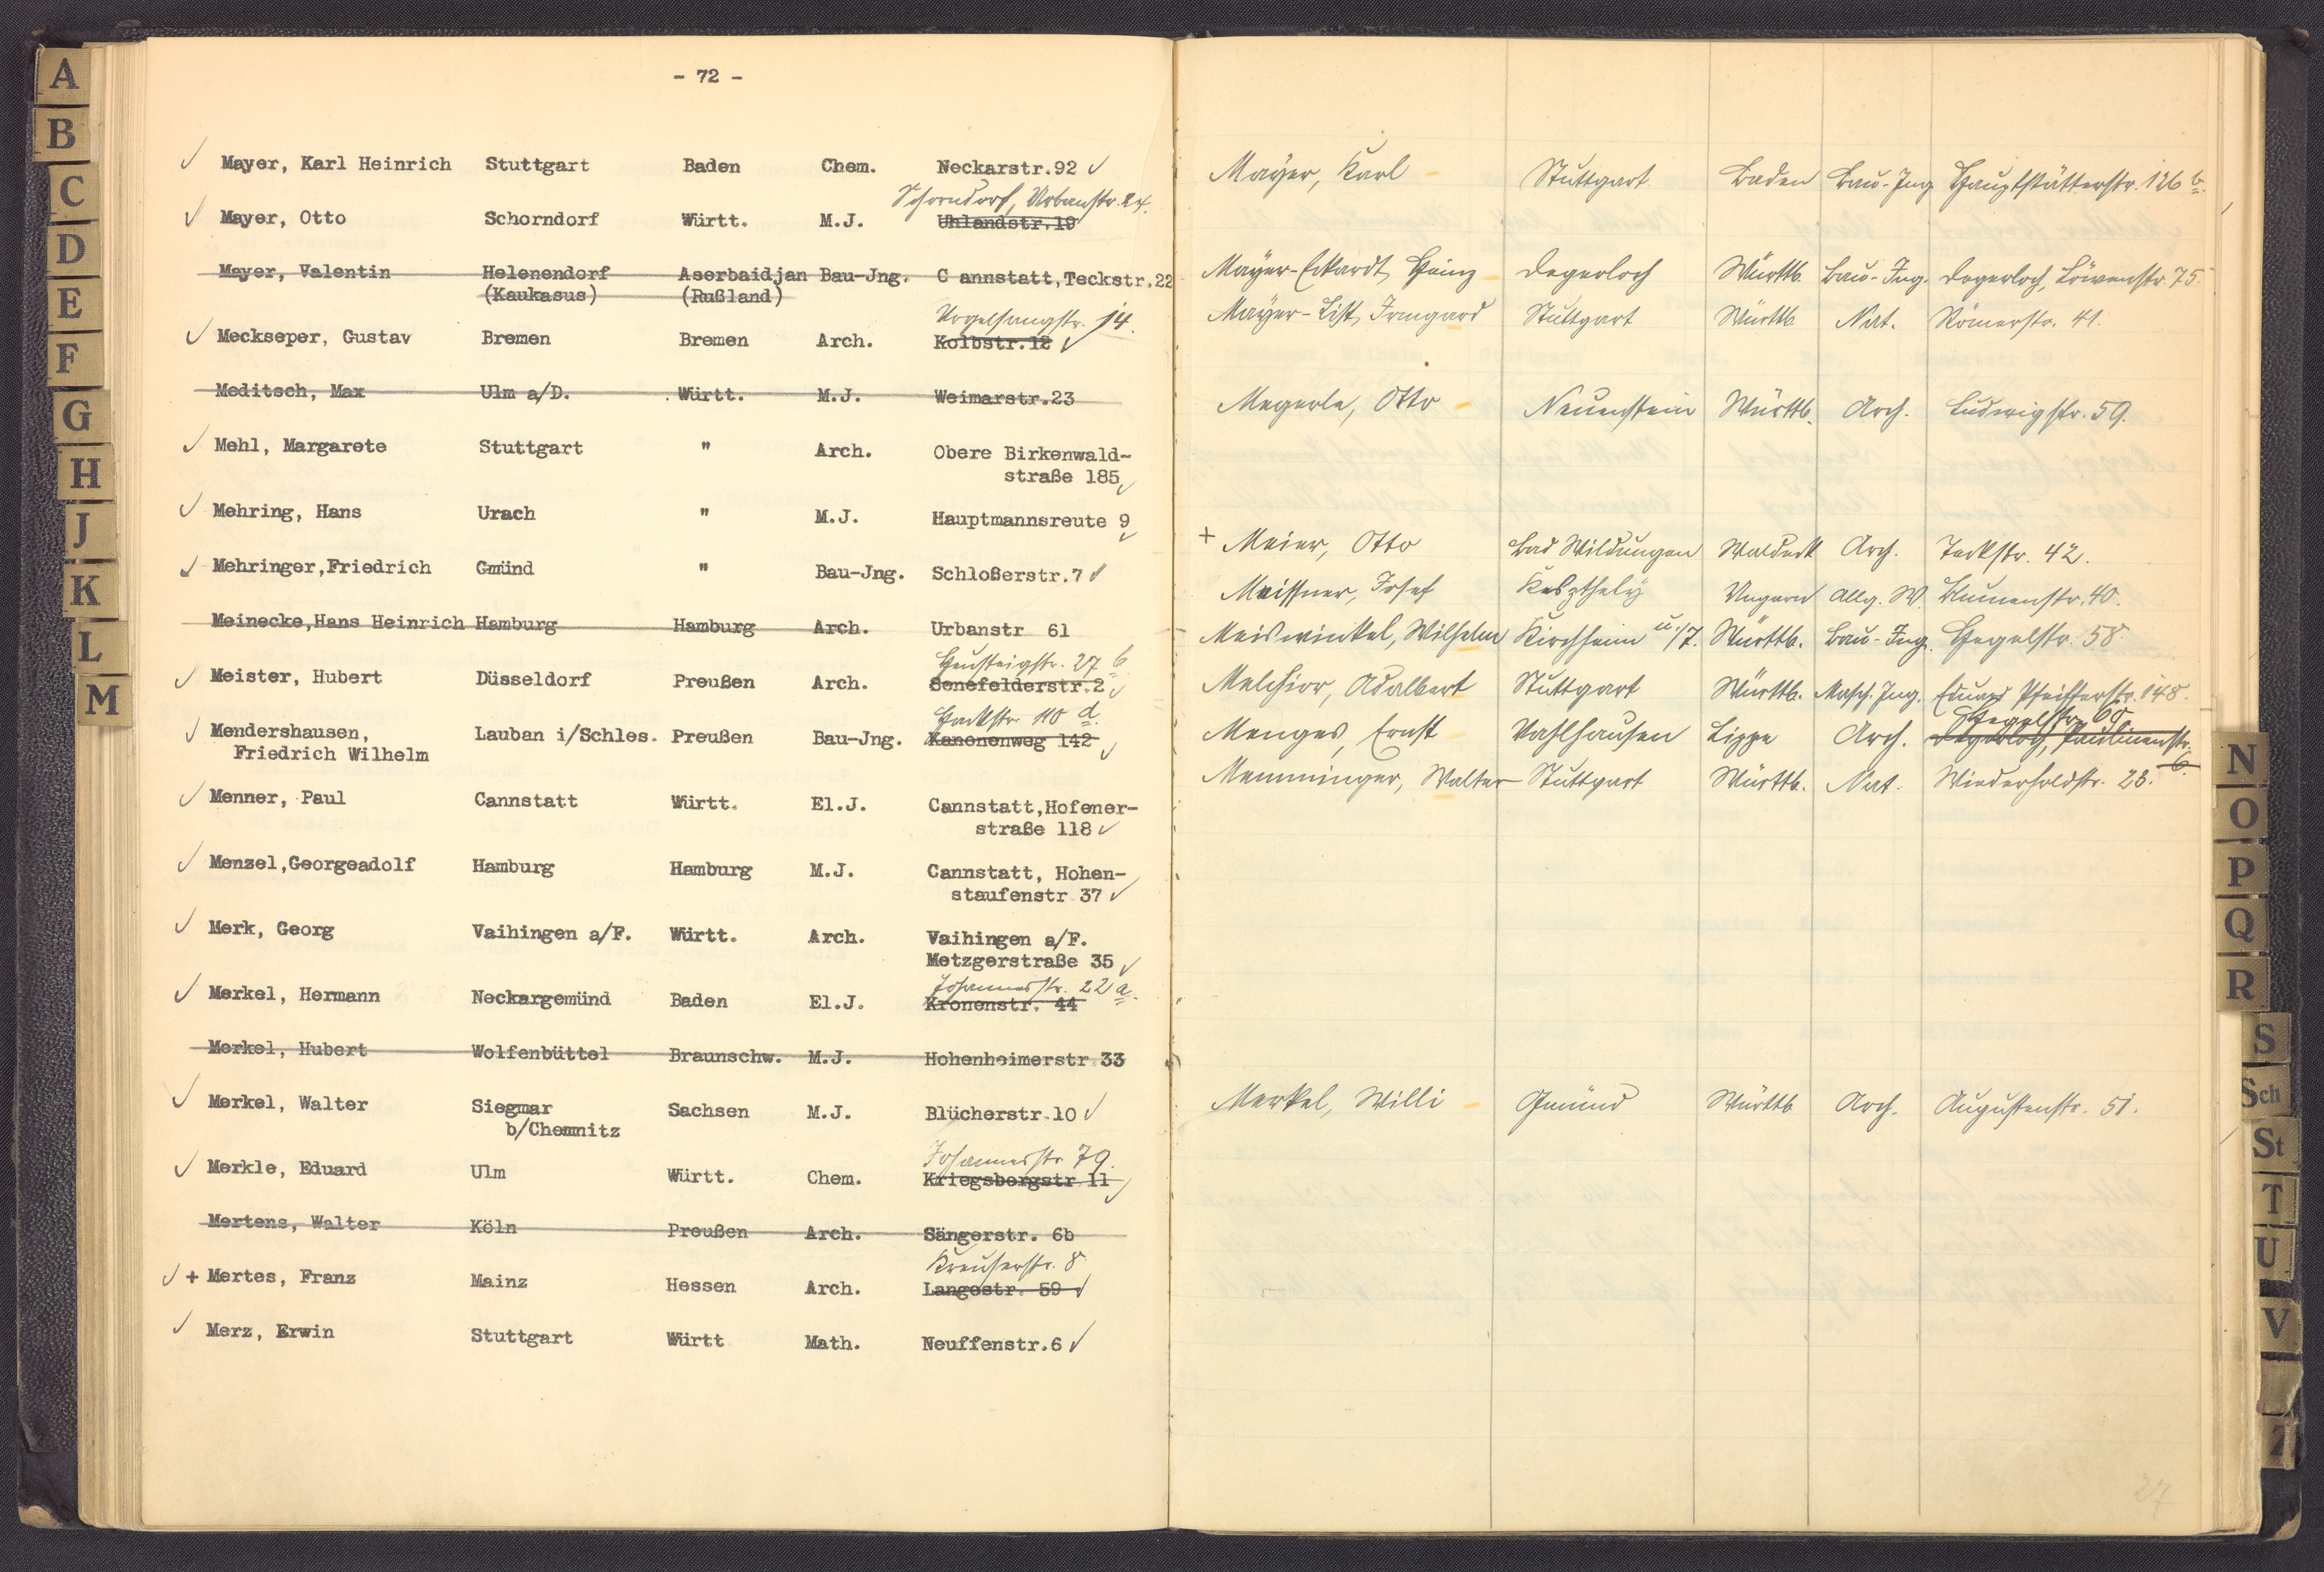 - 72 -
Mayer, Karl Heinrich Stuttgart Baden Chem. Neckarstr.92
Schorndorf, Urbanstr. 24.
Mayer, Otto Schorndorf Württ. M.J. Uhlandstr.19
Mayer, Valentin Helenendorf Aserbaidjan Bau-Jng. C annstatt,Teckstr.22
(Kaukasus) (Rußland)
Vogelsangstr. 14.
Meckseper, Gustav Bremen Bremen Arch. Kolbstr.12
Meditsch, Max Ulm a/D. Württ. M.J. Weimarstr.23
Mehl, Margarete Stuttgart " Arch. Obere Birkenwald-
straße 185
Mehring, Hans Urach " M.J. Hauptmannsreute 9
Mehringer,Friedrich Gmünd " Bau-Jng. Schloßerstr.7
Meinecke,Hans Heinrich Hamburg Hamburg Arch. Urbanstr 61
27 b
Meister, Hubert Düsseldorf Preußen Arch. Senefelderstr.2
Hackstr. 110 d.
Mendershausen, Lauban i/Schles. Preußen Bau-Jng. Kanonenweg 142
Friedrich Wilhelm
Menner, Paul Cannstatt Württ. El.J. Cannstatt,Hofener-
straße 118
Menzel,Georgeadolf Hamburg Hamburg M.J. Cannstatt, Hohen-
staufenstr 37
Merk, Georg Vaihingen a/F. Württ. Arch. Vaihingen a/F.
Metzgerstraße 35
Johannesstr. 22 a.
Merkel, Hermann Neckargemünd Baden El.J. Kronenstr. 44
Merkel, Hubert Wolfenbüttel Braunschw. M.J. Hohenheimerstr 33
Merkel, Walter Siegmar Sachsen M.J. Blücherstr.10
b/Chemnitz
Johannesstr 79.
Merkle, Eduard Ulm Württ. Chem. Kriegsbergstr 11
Mertens, Walter Köln Preußen Arch. Sängerstr. 6b
Kreuserstr. 8
+ Mertes, Franz Mainz Hessen Arch. Langestr. 59
Merz, Erwin Stuttgart Württ Math. Neuffenstr.6
Mayer, Karl Stuttgart Baden Bau-Ing Hauptstätterstr. 126 b.
Mayer-Eckardt, Heinz Degerloch Württb. Bau-Ing. Degerloch, Löwenstr. 75.
Mayer-List, Irmgard Stuttgart Württb Nat. Römerstr. 41.
Megerle, Otto Neuenstein Württb. Arch. Ludwigstr. 59.
+ Meier, Otto Bad Wildungen Waldeck Arch. Teckstr. 42.
Meissner, Josef Keszthely Ungarn Allg. W. Blumenstr. 40.
Meiswinkel, Wilhelm Kirchheim u/T. Württb. Bau-Ing. Hegelstr. 58.
Melchior, Adalbert Stuttgart Württb. Masch. Ing. Eduard Pfeifferstr. 148.
Hegelstr. 60.
Menges, Ernst Vahlhausen Lippe Arch. Degerloch, Paulinenstr.
6.
Memminger, Walter Stuttgart Württb. Nat. Wiederholdstr. 23.
Merkel, Willi Gmünd Württb Arch. Augustenstr. 51.
27
A
B
C
D
E
F
G
H
J
K
L
M
N
O
P
Q
R
S
Sch
St
T
U
V
Z